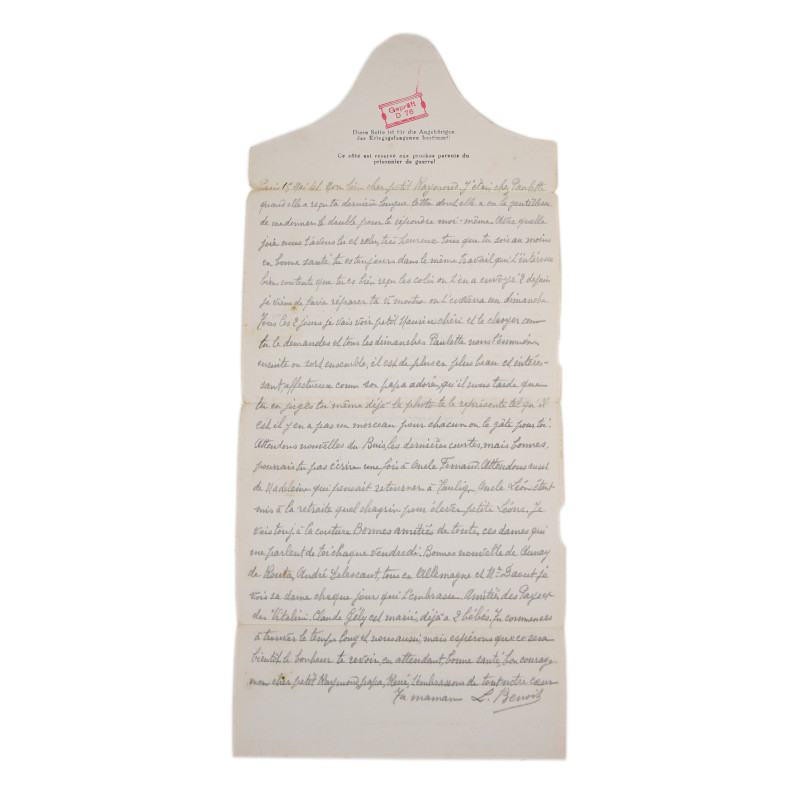 Geprüft
D 76
Diese Seite ist für die Angehörigen
des Kriegsgefangenen bestimmt!
Ce côté est réservé aux proches parents du
prisonnier de guerre!
Paris 15 Mai 41. Mon bien cher petit Raymond. J'étais chez Paulette
quand elle a reçu ta dernière longue lettre dont elle a eu la gentillesse
de me donner le double pour te répondre moi-même. Avec quelle
joie nous t'avons lu et relu, très heureux tous que tu sois au moins
en bonne santé, tu es toujours dans le même travail qui t'intéresse
bien contente que tu es bien reçu les colis on t'en a envoyé 2 depuis
je viens de faire réparer ta montre on l'enverra dimanche
Tous les 2 jours je vais voir petit chéri et le choyer com
tu le demandes et tous les dimanches Paulette nous l'emmène
ensuite on sort ensemble, il est de plus en plus beau et intéres-
sant, affectueux comme son papa adoré, qu'il nous tarde que
tu en juges toi même déjà la photo te le représente tel qu'il
est il y en a pas un morceau pour chacun on le gâte pour toi.
Attendons nouvelles du Buis, les dernières courtes, mais bonnes,
pourrais tu pas écrire une fois à Oncle Fernand. Attendons aussi
de Madeleine qui pensait retourner à Oncle Léon étant
mis à la retraite quel chagrin pour élever petite Je
vais touj. à la couture Bonnes amitiés de toutes ces dames qui
me parlent de toi chaque vendredi. Bonnes nouvelles de
de André tous en Allemagne et Mr je
vois sa dame chaque jour qui t'embrasse. Amitiés des et
des Vitalini. Claude Gély est marié, déjà a 2 bébés. Tu commences
à trouver le temps long et nous aussi, mais espérons que ce sera
bientôt le bonheur te revoir, en attendant, bonne santé, bon courage
mon cher petit Raymond, papa, René, t'embrassons de tout notre cœur
Ta maman L. Benoit